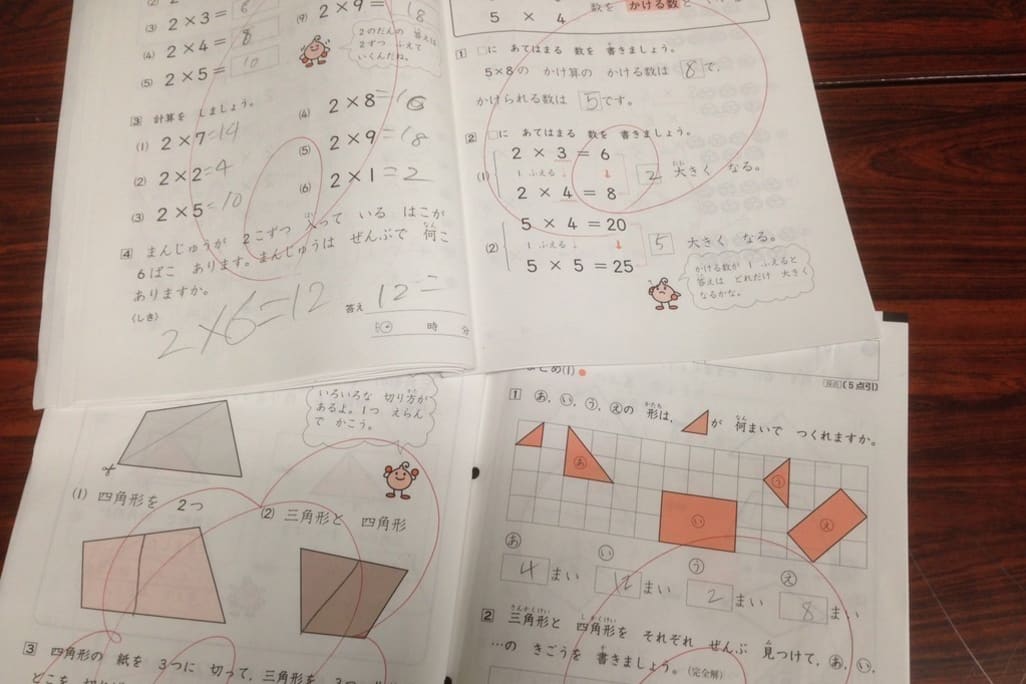 (2) 2
(3) 2×3= 6
(4) 2×4= 8
(5) 2×5= 10
(9) 2×9= 18
2のだんの 答えは
2ずつ ふえて
いくんだね。
3 計算を しましょう。
(1) 2×7=14
(2) 2×2=4
(3) 2×5=10
(4) 2×8=16
(5) 2×9=18
(6) 2×1=2
4 まんじゅうが 2こずつ 入って いる はこが
6ぱこ あります。まんじゅうは ぜんぶで 何こ
ありますか。
〈しき〉
2×6=12
答え 12こ
時 分
5 × 4
数を かける数と
1 □に あてはまる 数を 書きましょう。
5×8の かけ算の かける数は 8 で、
かけられる数は 5 です。
2 □に あてはまる 数を 書きましょう。
(1) 2 × 3 = 6
1 ふえる ↓ ↓ 2 大きく なる。
2 × 4 = 8
(2) 5 × 4 = 20
1 ふえる ↓ ↓ 5 大きく なる。
5 × 5 = 25
かける数が 1 ふえると
答えは どれだけ 大きく
なるかな。
いろいろな 切り方が
あるよ。1つ えらん
で かこう。
(1) 四角形を 2つ
(2) 三角形と 四角形
3 四角形の 紙を 3つに 切って、三角形を 3つ
まとめ(1)
(5点引)
1 あ、い、う、えの 形は、 が 何まいで つくれますか。
あ
い
う
え
あ い う え
4 まい 12 まい 2 まい 8 まい
2 三角形と 四角形を それぞれ ぜんぶ 見つけて、あ、い、
…の きごうを 書きましょう。(完全解)